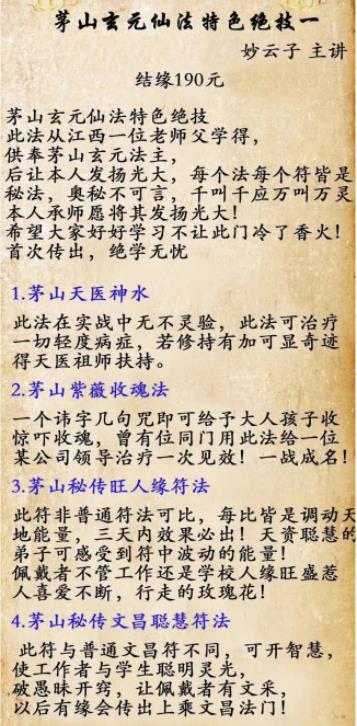 茅山玄元仙法特色绝技一
妙云子 主讲
结缘190元
茅山玄元仙法特色绝技
此法从江西一位老师父学得，
供奉茅山玄元法主，
后让本人发扬光大，每个法每个符皆是
秘法，奥秘不可言，千叫千应万叫万灵
本人承师愿将其发扬光大！
希望大家好好学习不让此门冷了香火！
首次传出，绝学无忧
1.茅山天医神水
此法在实战中无不灵验，此法可治疗
一切轻度病症，若修持有加可显奇迹
得天医祖师扶持。
2.茅山紫薇收魂法
一个讳字几句咒即可给予大人孩子收
惊吓收魂，曾有位同门用此法给一位
某公司领导治疗一次见效！一战成名！
3.茅山秘传旺人缘符法
此符非普通符法可比，每比皆是调动天
地能量，三天内效果必出！天资聪慧的
弟子可感受到符中波动的能量！
佩戴者不管工作还是学校人缘旺盛惹
人喜爱不断，行走的玫瑰花！
4.茅山秘传文昌聪慧符法
此符与普通文昌符不同，可开智慧，
使工作者与学生聪明灵光，
破愚昧开窍，让佩戴者有文采，
以后有缘会传出上乘文昌法门！